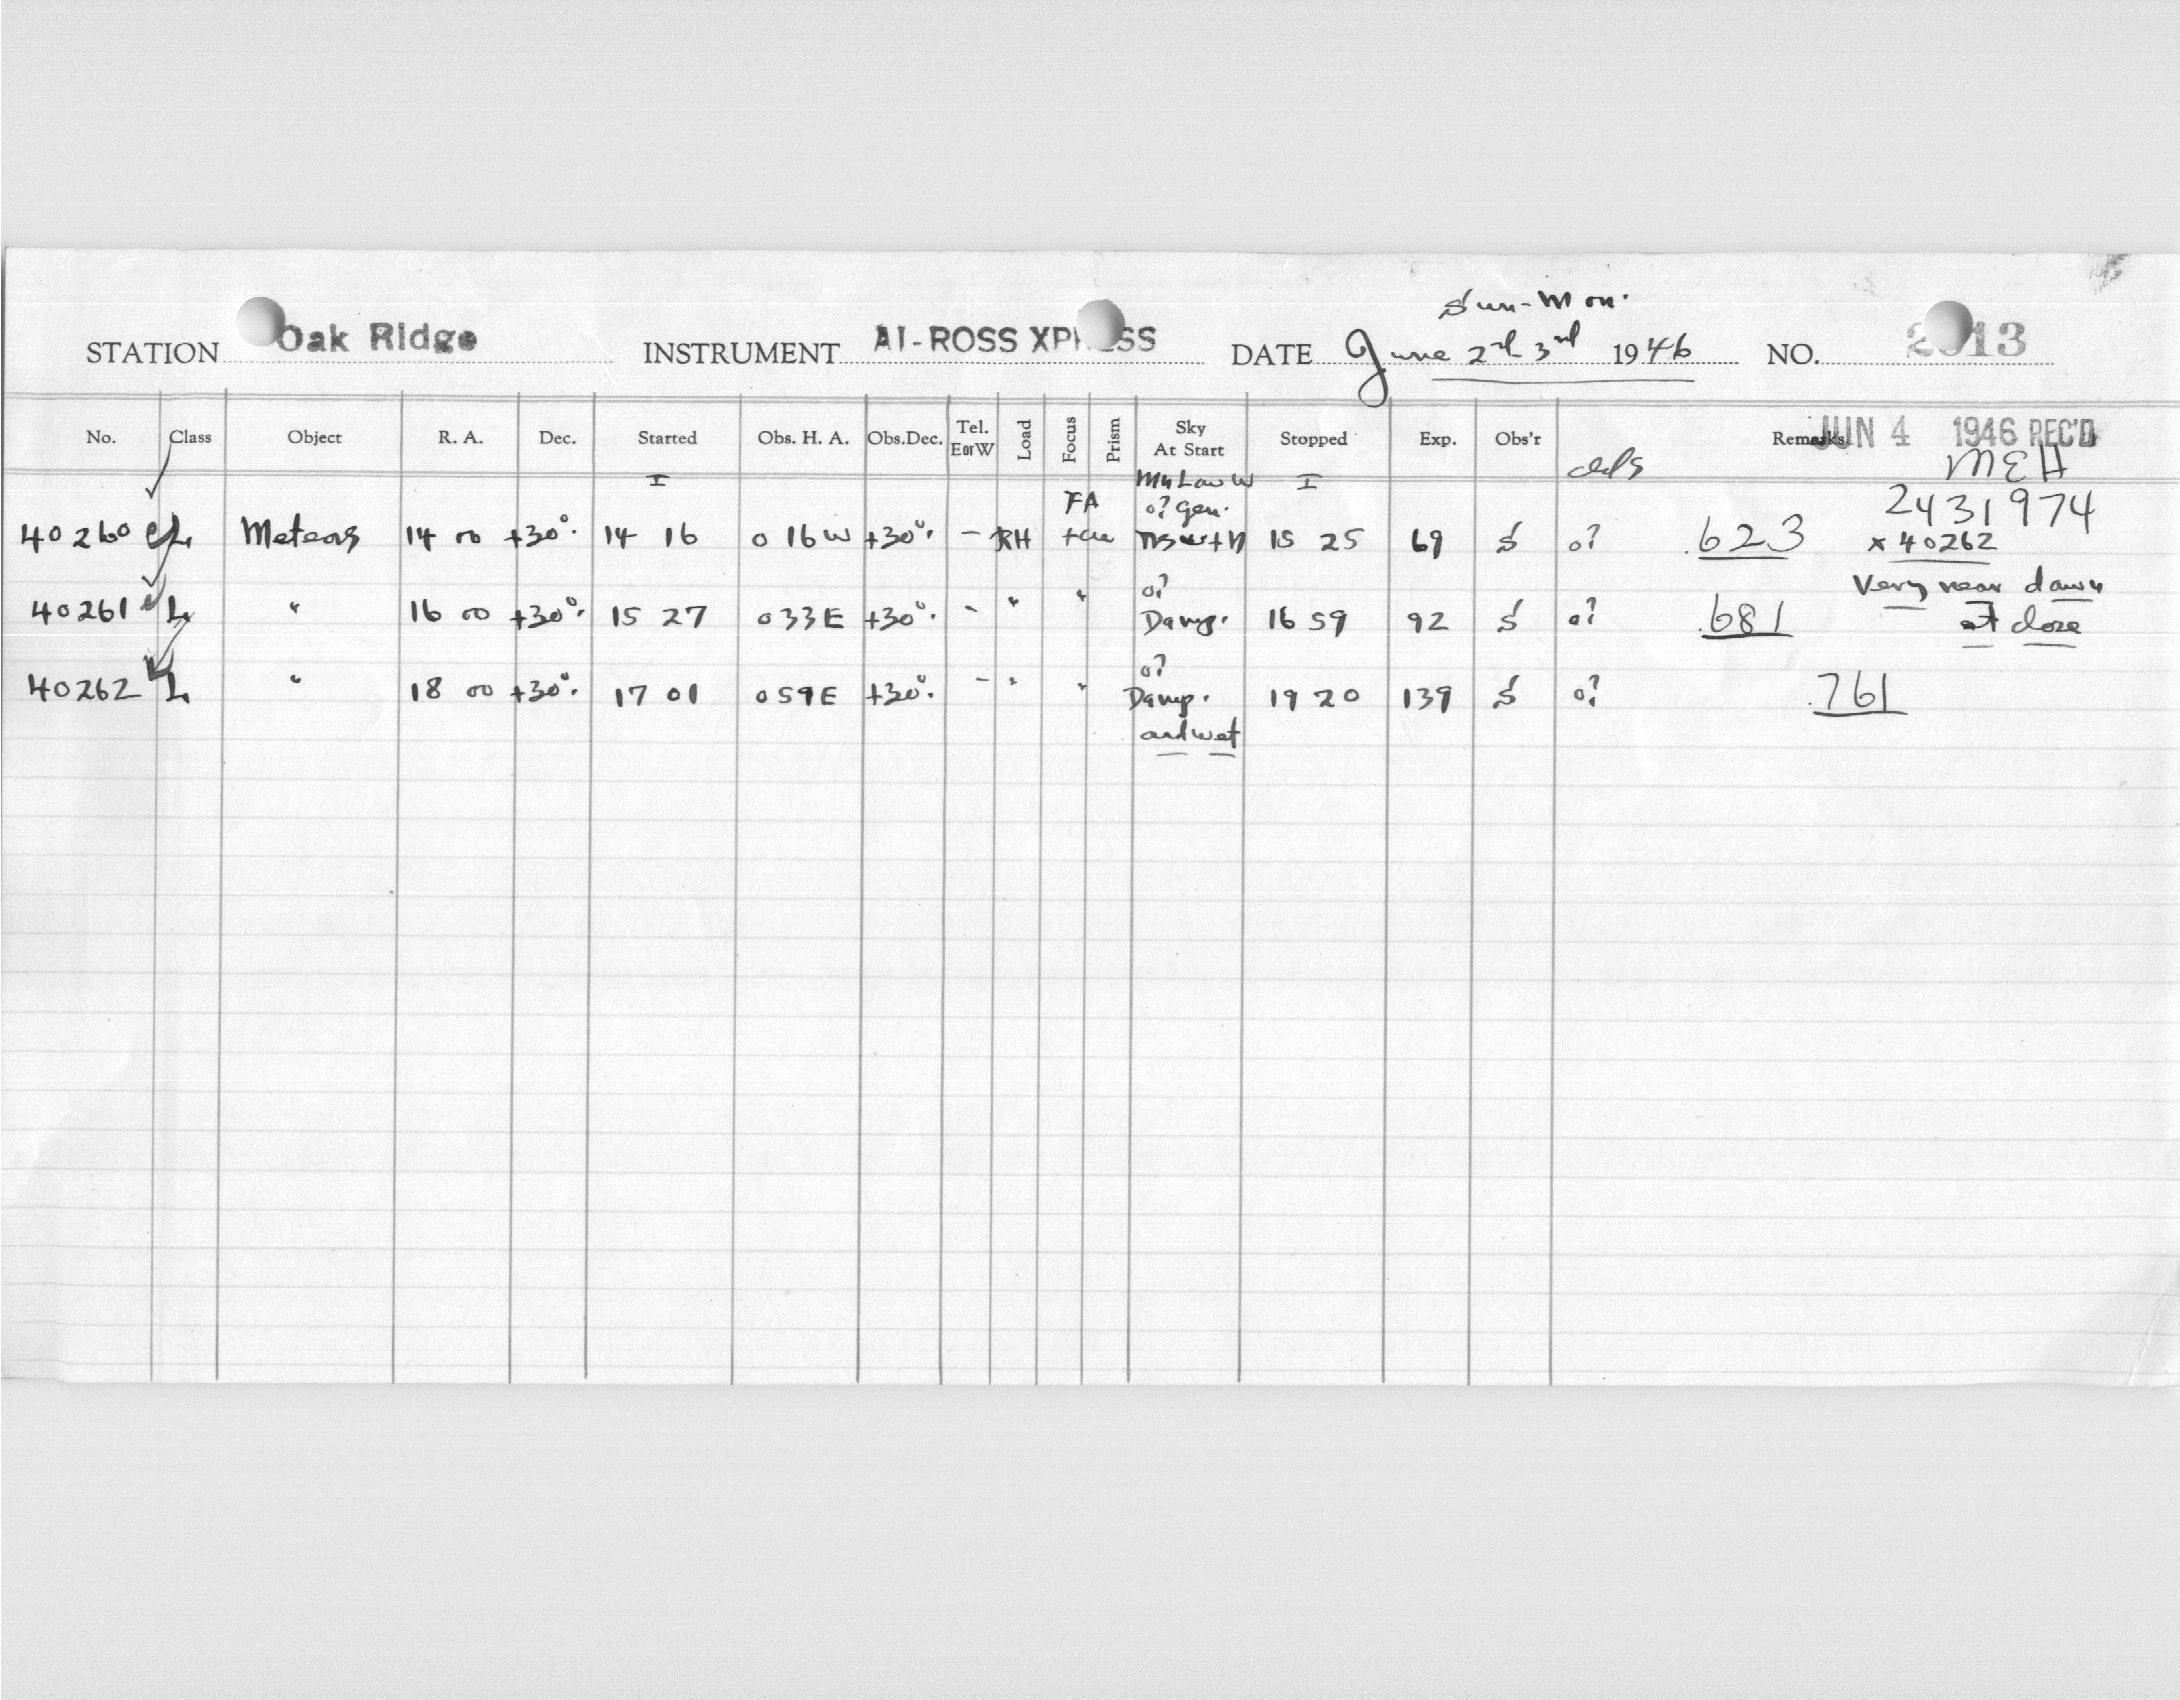 Sun-Mon.
STATION Oak Ridge INSTRUMENT AI-ROSS XP SS DATE June 2nd 3rd 1946 NO. 2 13
No. Class Object R. A. Dec. Started Obs. H. A. Obs.Dec. Tel. EorW Load Focus Prism Sky At Start Stopped Exp. Obs'r Remarks JUN 4 1946 REC'D
MEH
I I
FA o? Gen. 2431974
40260 L Meteors 14 00 +30°. 14 16 0 16W +30°. - RH 15 25 69 S o? .623 x 40262
Very near dawn
40261 L " 16 00 +30°. 15 27 0 33E +30°. - " " o? Damp. 16 59 92 S o? .681 at close
40262 L " 18 00 +30°. 17 01 0 59E +30°. - " " o? Damp. and wet 19 20 139 S o? .761